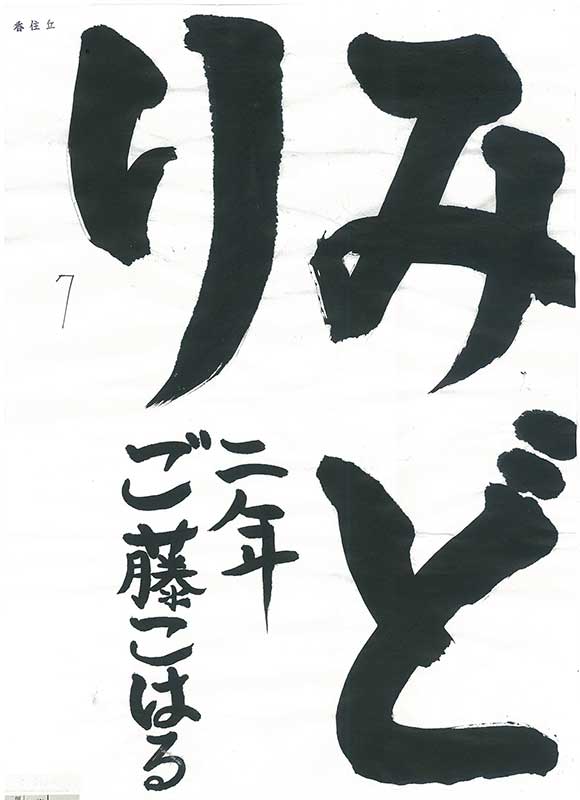 みど
り
二年
ご藤こはる
香住丘
7